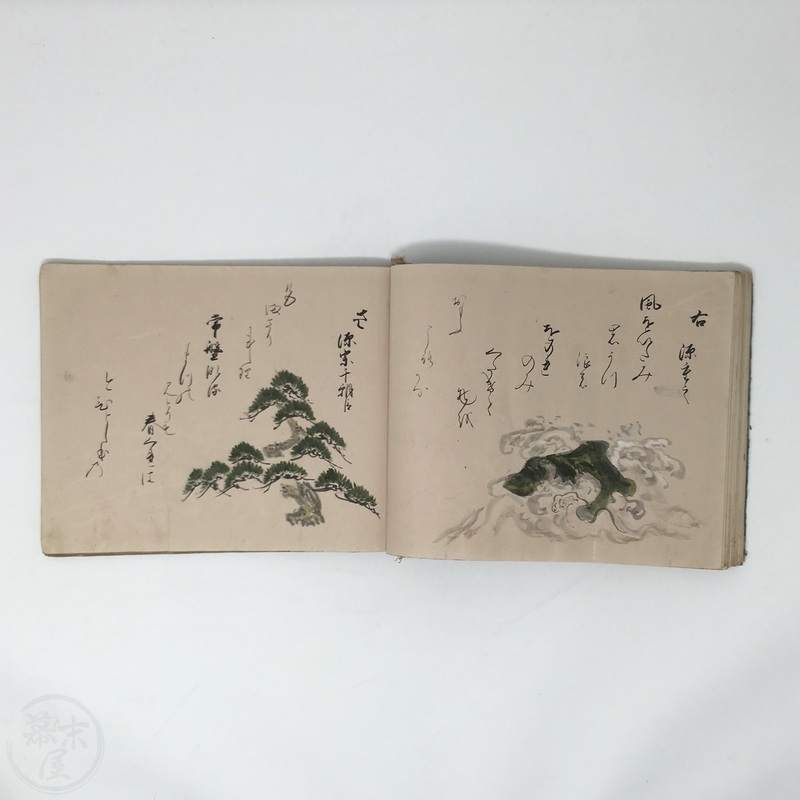 右 源重之
風をいたみ
岩うつ
浪の
をのれ
のみ
くたけて
物を
おもふ
ころかな
左 源宗于朝臣
常盤なる
まつの
みとりも
春くれは
ひとしほの
色
まさり
けり
幕末屋